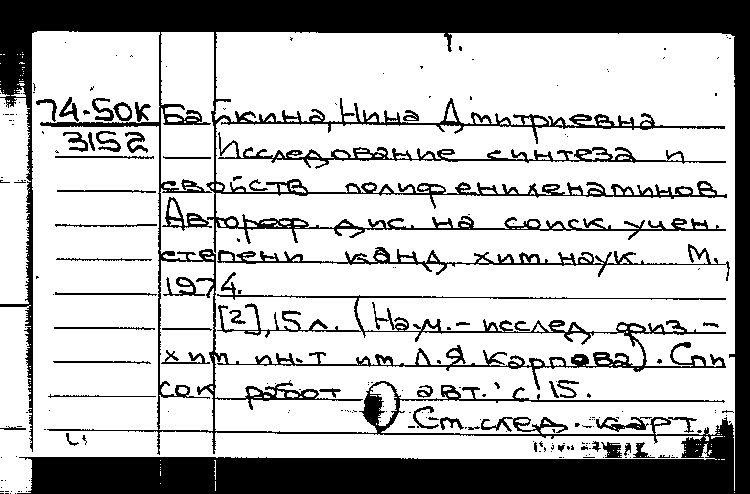 1.
74-50к Байкина, Нина Дмитриевна
3152 Исследование синтеза и
свойств полифениленаминов.
Автореф. дис. на соиск. учен.
степени канд. хим. наук. М.,
1974.
[2], 15 л. (Науч.-исслед. физ.-
хим. ин-т им. Л.Я. Карпова). Спи-
сок работ авт.: с. 15.
См. след. карт.